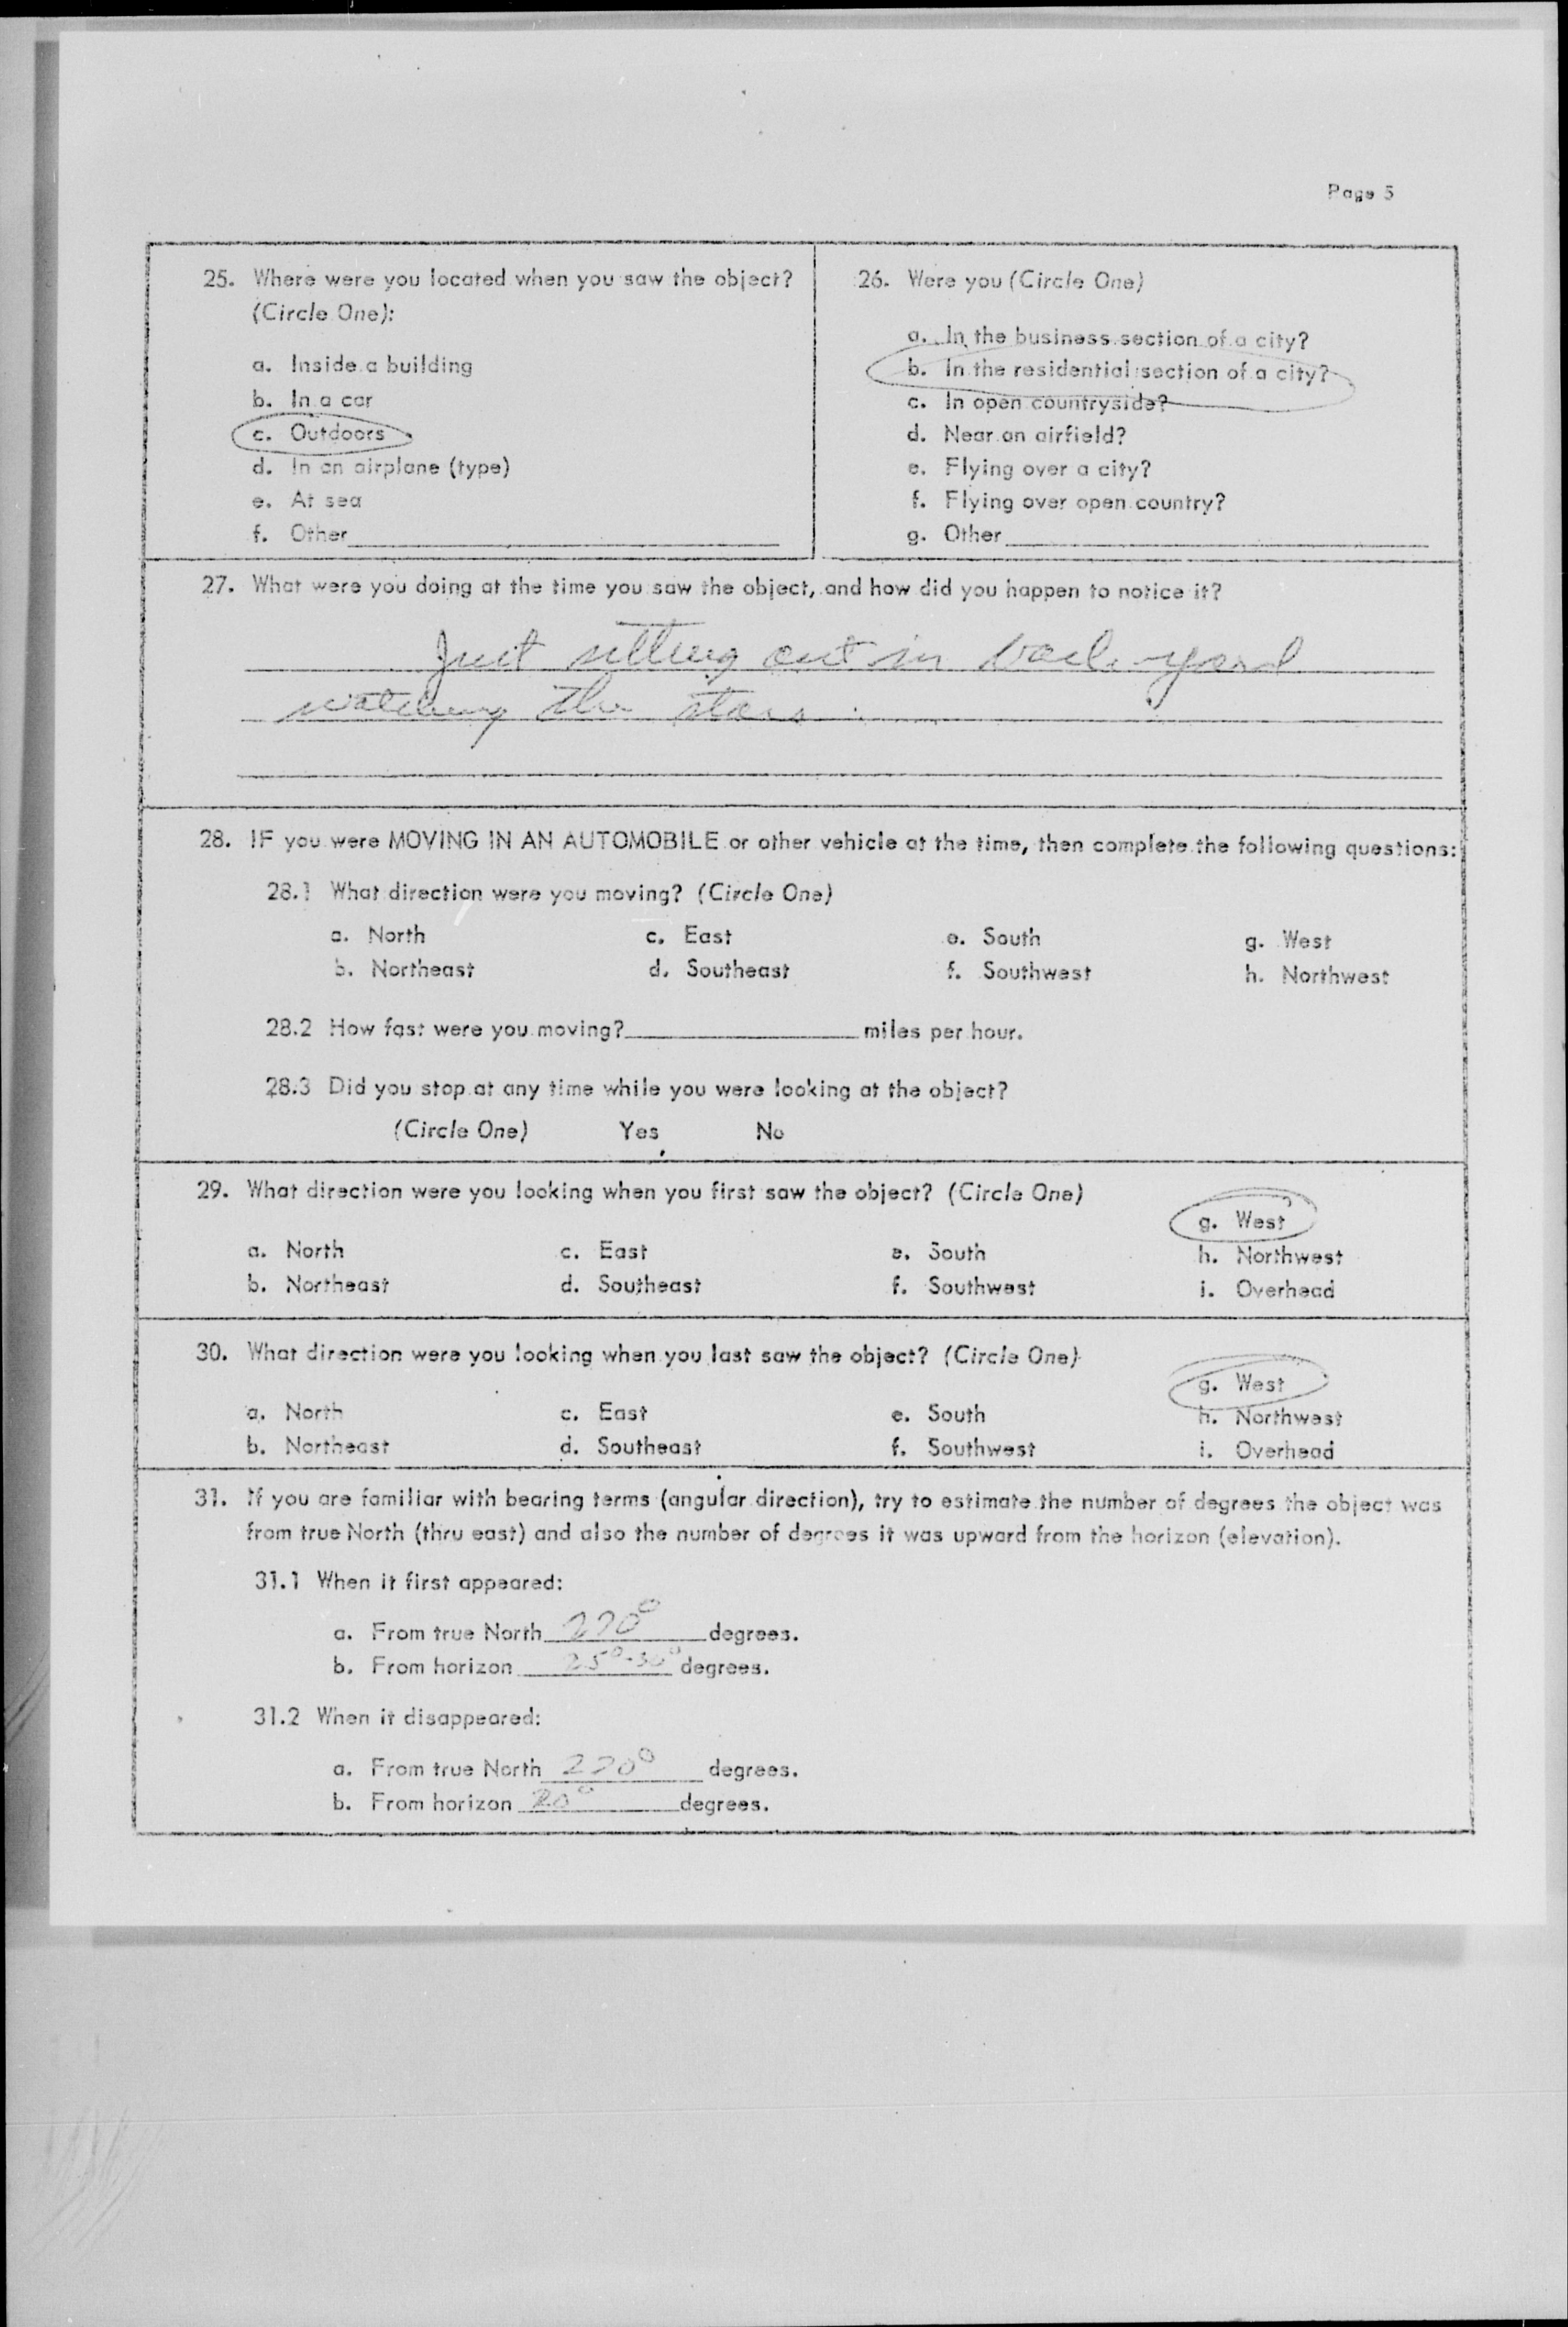 Page 5
25. Where were you located when you saw the object?
(Circle One):
a. Inside a building
b. In a car
c. Outdoors
d. In an airplane (type)
e. At sea
f. Other
26. Were you (Circle One)
a. In the business section of a city?
b. In the residential section of a city?
c. In open countryside?
d. Near an airfield?
e. Flying over a city?
f. Flying over open country?
g. Other
27. What were you doing at the time you saw the object, and how did you happen to notice it?
Just sitting out in back yard
watching the stars.
28. IF you were MOVING IN AN AUTOMOBILE or other vehicle at the time, then complete the following questions:
28.1 What direction were you moving? (Circle One)
a. North c. East e. South g. West
b. Northeast d. Southeast f. Southwest h. Northwest
28.2 How fast were you moving? miles per hour.
28.3 Did you stop at any time while you were looking at the object?
(Circle One) Yes No
29. What direction were you looking when you first saw the object? (Circle One)
g. West
a. North c. East e. South h. Northwest
b. Northeast d. Southeast f. Southwest i. Overhead
30. What direction were you looking when you last saw the object? (Circle One)
g. West
a. North c. East e. South h. Northwest
b. Northeast d. Southeast f. Southwest i. Overhead
31. If you are familiar with bearing terms (angular direction), try to estimate the number of degrees the object was
from true North (thru east) and also the number of degrees it was upward from the horizon (elevation).
31.1 When it first appeared:
a. From true North 270° degrees.
b. From horizon 25°-30° degrees.
31.2 When it disappeared:
a. From true North 270° degrees.
b. From horizon 20° degrees.